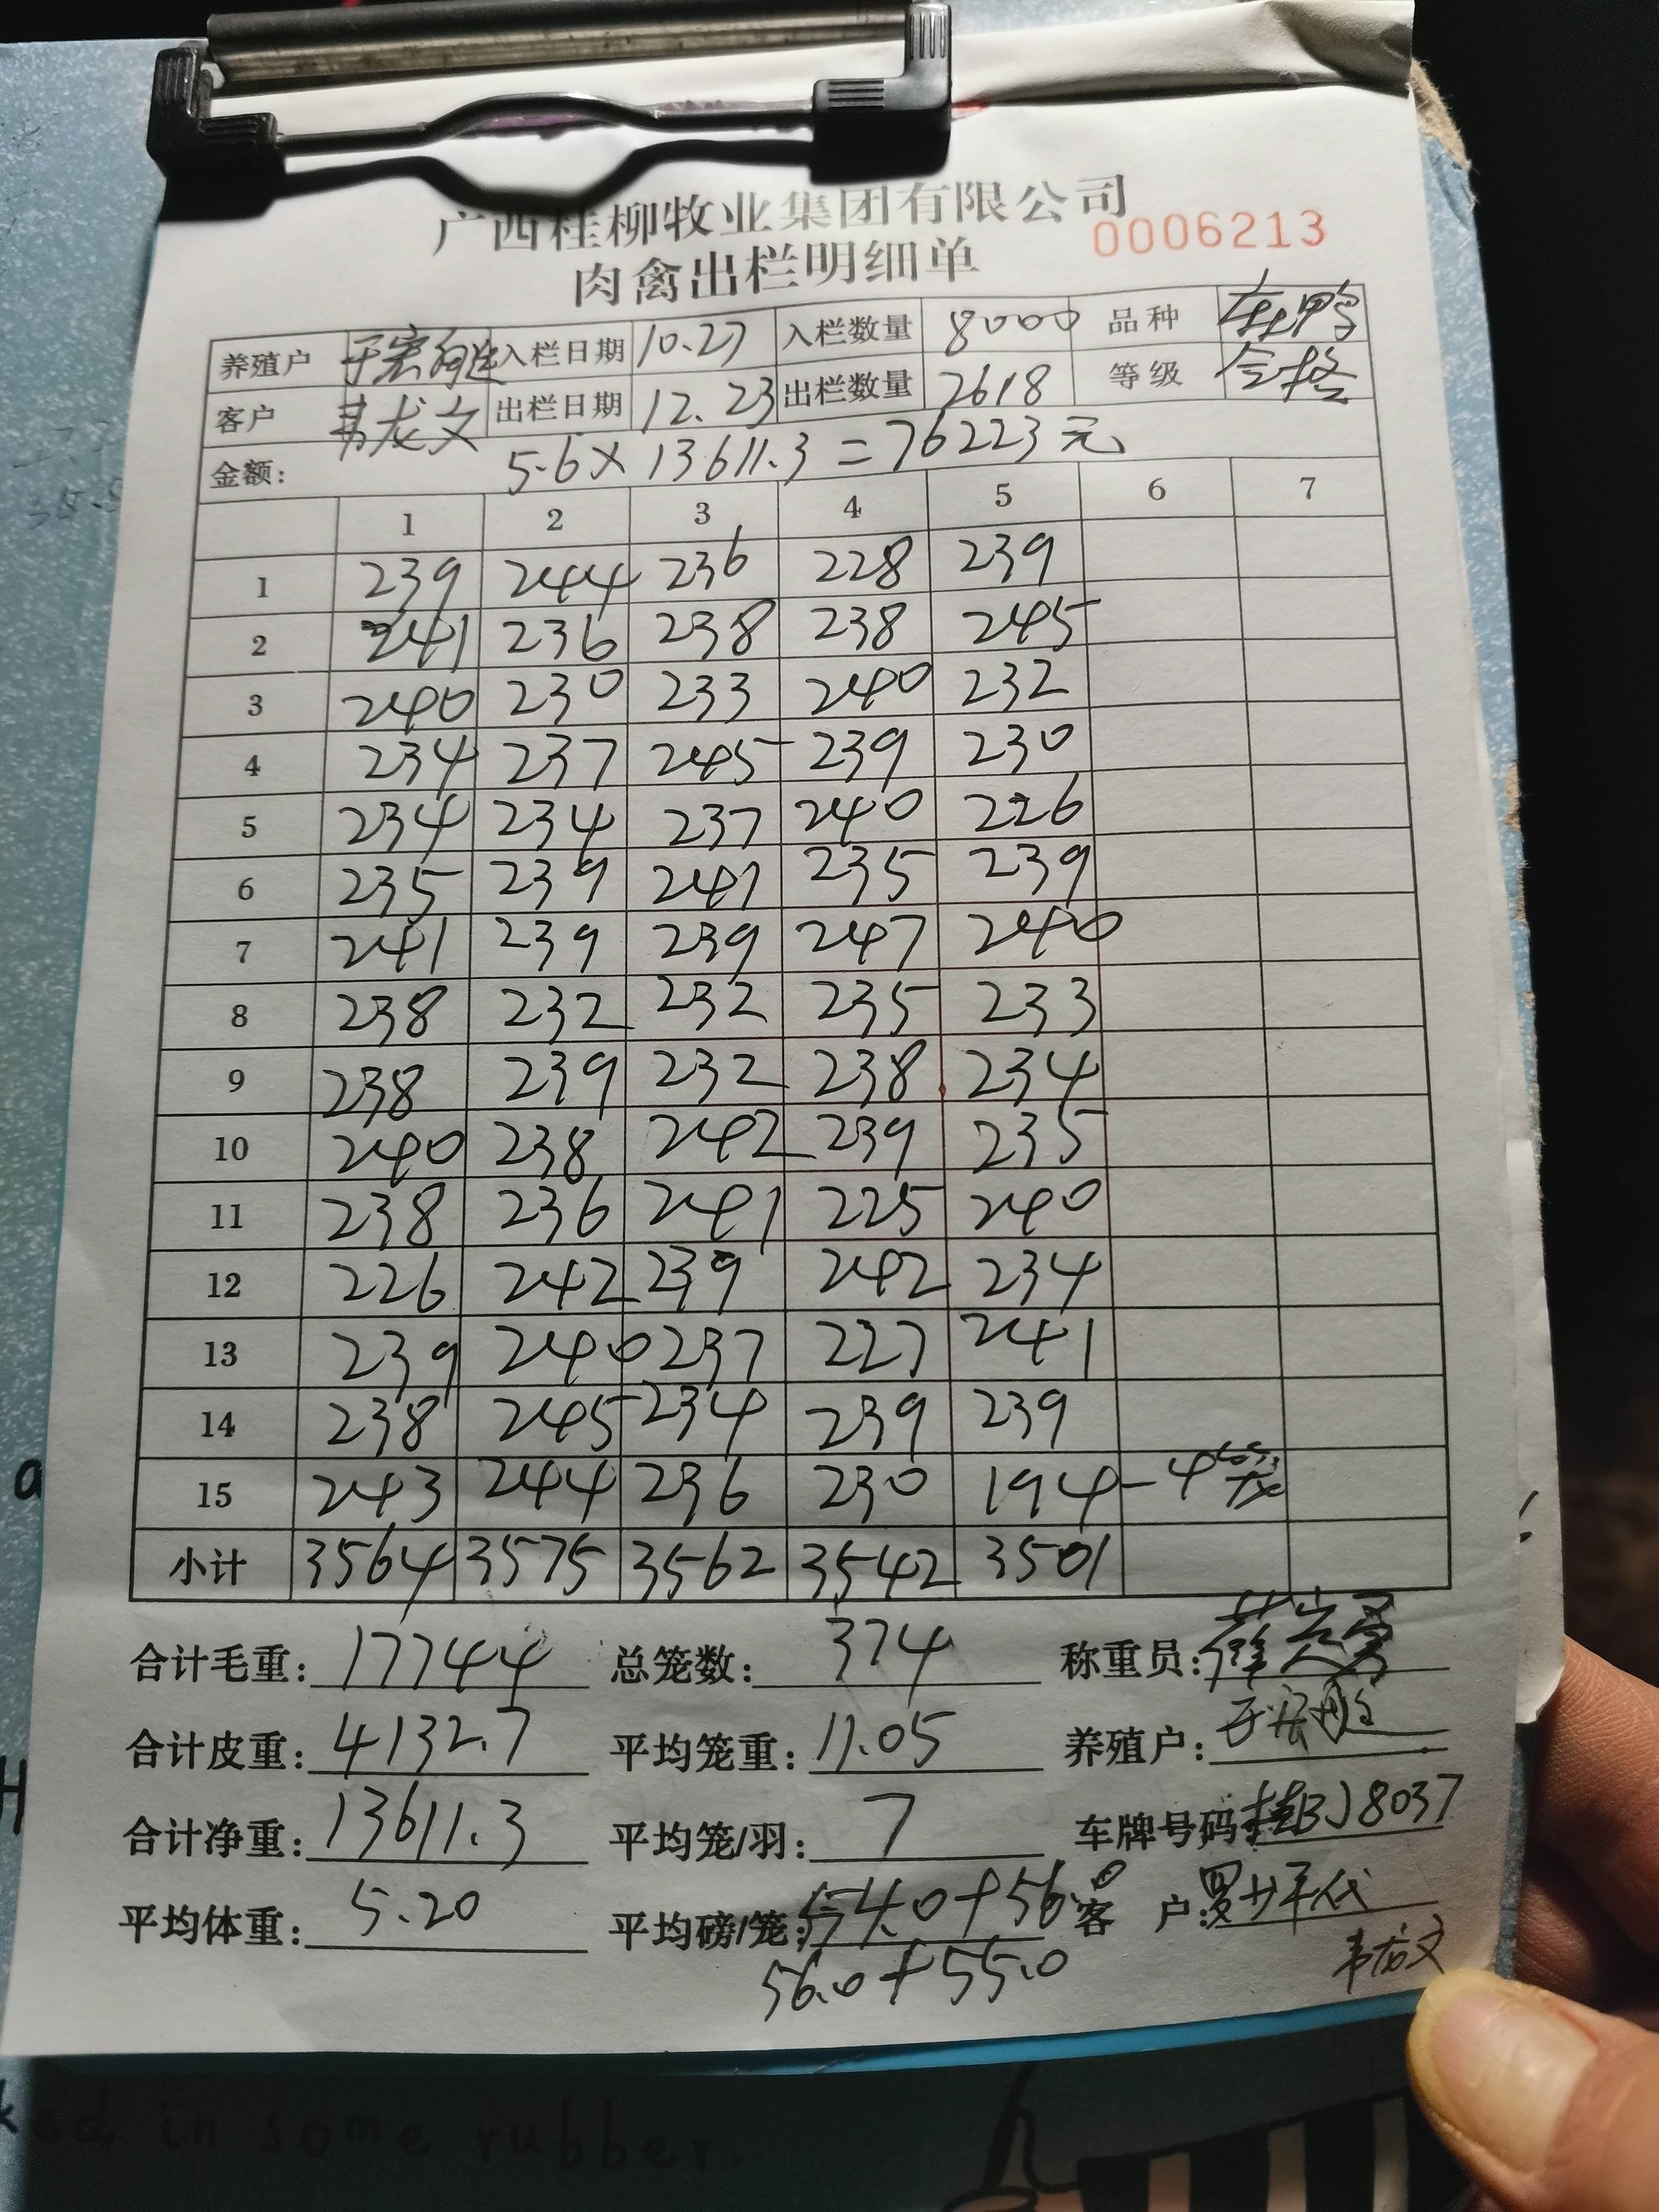 广西桂柳牧业集团有限公司
0006213
肉禽出栏明细单
养殖户 入栏日期 10.27 入栏数量 8000 品种
客户 韦龙文 出栏日期 12.23 出栏数量 2618 等级 合格
金额： 5.6×13611.3=76223元
1 2 3 4 5 6 7
1 239 244 236 228 239
2 241 236 238 238 245
3 240 230 233 240 232
4 234 237 245 239 230
5 234 234 237 240 226
6 235 239 241 235 239
7 241 239 239 247 240
8 238 232 232 235 233
9 238 239 232 238 234
10 240 238 242 239 235
11 238 236 241 225 240
12 226 242 239 242 234
13 239 240 237 227 241
14 238 245 234 239 239
15 243 244 236 230 194 -4
小计 3564 3575 3562 3542 3501
合计毛重： 17744 总笼数： 374 称重员：
合计皮重： 4132.7 平均笼重： 11.05 养殖户：
合计净重： 13611.3 平均笼/羽： 7 车牌号码 桂BJ8037
平均体重： 5.20 平均磅/笼： 54.0+56.0 客 户：
56.0+55.0 韦龙文
ked in some rubber.